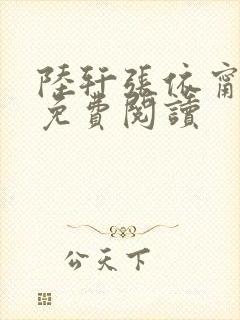 陸軒張依甯
免費閱讀
公天下